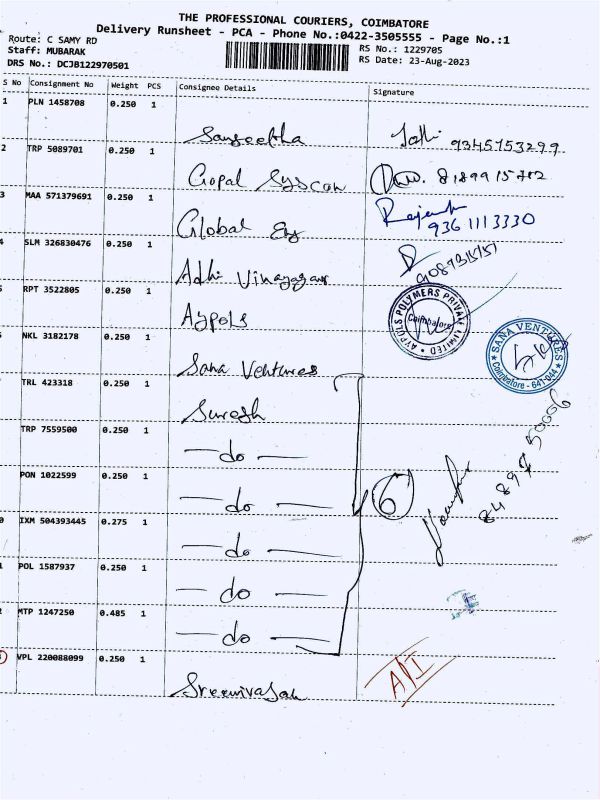 THE PROFESSIONAL COURIERS, COIMBATORE
Delivery Runsheet - PCA - Phone No.:0422-3505555 - Page No.:1
Route: C SAMY RD
Staff: MUBARAK
DRS No.: DCJB122970501
RS No.: 1229705
RS Date: 23-Aug-2023
S No Consignment No Weight PCS Consignee Details Signature
1 PLN 1458708 0.250 1
Sangeetha 9345753299
2 TRP 5089701 0.250 1
Gopal Syscon
3 MAA 571379691 0.250 1
Global 9361113330
4 SLM 326830476 0.250 1
Adhi Vinayagar
5 RPT 3522805 0.250 1
Aypols
AYPOLS POLYMERS PRIVATE LIMITED
Coimbatore
NKL 3182178 0.250 1
Sana Ventures
SANA VENTURES
Coimbatore - 641 044
TRL 423318 0.250 1
Suresh
TRP 7559500 0.250 1
— do —
PON 1022599 0.250 1
— do — 6
IXM 504393445 0.275 1
— do —
POL 1587937 0.250 1
— do —
MTP 1247250 0.485 1
— do —
VPL 220088099 0.250 1
Sreenivasan